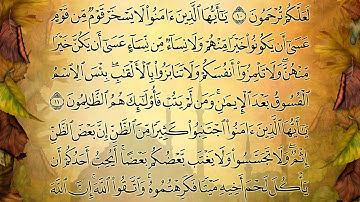 لَعَلَّكُمْ تُرْحَمُونَ ١٠ يَٰٓأَيُّهَا ٱلَّذِينَ ءَامَنُوا۟ لَا يَسْخَرْ قَوْمٌ مِّن قَوْمٍ
عَسَىٰٓ أَن يَكُونُوا۟ خَيْرًا مِّنْهُمْ وَلَا نِسَآءٌ مِّن نِّسَآءٍ عَسَىٰٓ أَن يَكُنَّ خَيْرًا
مِّنْهُنَّ ۖ وَلَا تَلْمِزُوٓا۟ أَنفُسَكُمْ وَلَا تَنَابَزُوا۟ بِٱلْأَلْقَٰبِ ۖ بِئْسَ ٱلِٱسْمُ
ٱلْفُسُوقُ بَعْدَ ٱلْإِيمَٰنِ ۚ وَمَن لَّمْ يَتُبْ فَأُو۟لَٰٓئِكَ هُمُ ٱلظَّٰلِمُونَ ١١
يَٰٓأَيُّهَا ٱلَّذِينَ ءَامَنُوا۟ ٱجْتَنِبُوا۟ كَثِيرًا مِّنَ ٱلظَّنِّ إِنَّ بَعْضَ ٱلظَّنِّ
إِثْمٌ ۖ وَلَا تَجَسَّسُوا۟ وَلَا يَغْتَب بَّعْضُكُم بَعْضًا ۚ أَيُحِبُّ أَحَدُكُمْ أَن
يَأْكُلَ لَحْمَ أَخِيهِ مَيْتًا فَكَرِهْتُمُوهُ ۚ وَٱتَّقُوا۟ ٱللَّهَ ۚ إِنَّ ٱللَّهَ